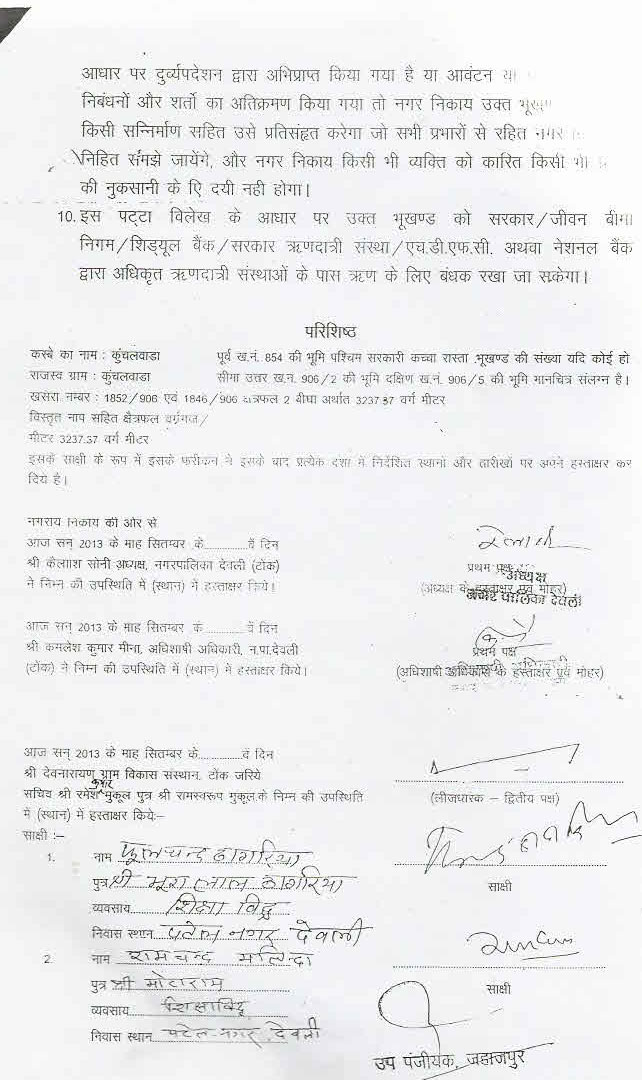 आधार पर दुर्व्यपदेशन द्वारा अभिप्राप्त किया गया है या आवंटन या
निबंधनों और शर्तो का अतिक्रमण किया गया तो नगर निकाय उक्त
किसी सन्निर्माण सहित उसे प्रतिसंहृत करेगा जो सभी प्रभारों से रहित नगर
निहित संमझे जायेंगे, और नगर निकाय किसी भी व्यक्ति को कारित किसी भी
की नुकसानी के एि दयी नही होगा।
10. इस पट्टा विलेख के आधार पर उक्त भूखण्ड को सरकार/जीवन बीमा
निगम/शिड्यूल बैंक/सरकार ऋणदात्री संस्था/एच.डी.एफ.सी. अथवा नेशनल बैंक
द्वारा अधिकृत ऋणदात्री संस्थाओं के पास ऋण के लिए बंधक रखा जा सकेगा।
परिशिष्ठ
कस्बे का नाम : कुंचलवाडा पूर्व ख.नं. 854 की भूमि पश्चिम सरकारी कच्चा रास्ता भूखण्ड की संख्या यदि कोई हो
राजस्व ग्राम : कुंचलवाडा सीमा उत्तर ख.न. 906/2 की भूमि दक्षिण ख.नं. 906/5 की भूमि मानचित्र संलग्न है।
खसरा नम्बर : 1852/906 एवं 1846/906 क्षत्रफल 2 बीघा अर्थात 3237.37 वर्ग मीटर
विस्तृत नाप सहित क्षैत्रफल वर्गगज/
मीटर 3237.37 वर्ग मीटर
इसके साक्षी के रूप में इसके फरीकन ने इसके बाद प्रत्येक दशा में निर्देशित स्थानों और तारीखों पर अपने हस्ताक्षर कर
दिये है।
नगराय निकाय की ओर से
आज सन् 2013 के माह सितम्बर के............वें दिन
श्री कैलााश सोनी अध्यक्ष, नगरपालिका देवली (टोंक)
ने निम्न की उपस्थिति में (स्थान) में हस्ताक्षर किये।
प्रथम पक्ष
अध्यक्ष
(अध्यक्ष के हस्ताक्षर एवं मोहर)
नगर पालिका देवली
आज सन् 2013 के माह सितम्बर के............वें दिन
श्री कमलेश कुमार मीना, अधिशाषी अधिकारी, न.पा.देवली
(टोंक) ने निम्न की उपस्थिति में (स्थान) में हस्ताक्षर किये।
प्रथम पक्ष
(अधिशाषी अधिकारी के हस्ताक्षर एवं मोहर)
आज सन् 2013 के माह सितम्बर के............वें दिन
श्री देवनारायण ग्राम विकास संस्थान, टोंक जरिये
सचिव श्री रमेश कुमार मुकूल पुत्र श्री रामस्वरूप मुकूल के निम्न की उपस्थिति
में (स्थान) में हस्ताक्षर किये:–
(लीजधारक – द्वितीय पक्ष)
साक्षी :–
1. नाम फूलचन्द ठागरिया
पुत्र श्री भूरा लाल ठागरिया
व्यवसाय शिक्षा विद्
निवास स्थान पटेल नगर देवली
साक्षी
2 नाम रामचन्द
पुत्र श्री मोटाराम
व्यवसाय शिक्षाविद्
निवास स्थान पटेल नगर, देवली
साक्षी
उप पंजीयक, जहाजपुर